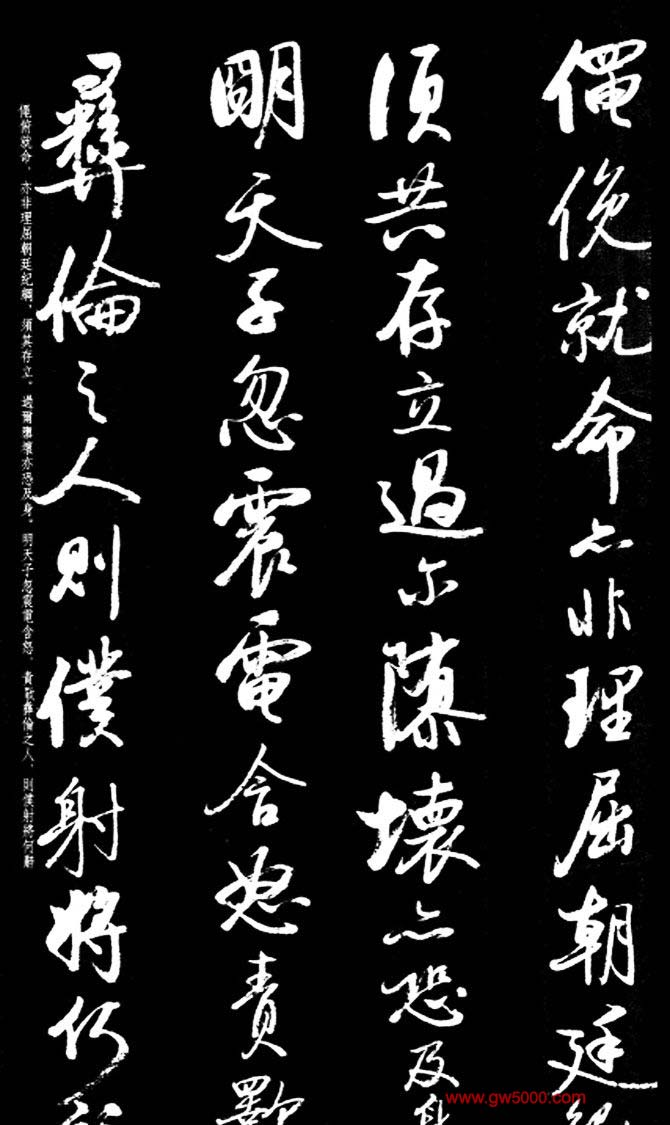 僶俛就命亦非理屈朝廷
須共存立過尓隳壞亦恐及身
明天子忽震電含怒責斁
彝倫之人則僕射將何
僶俛就命、亦非理屈朝廷紀綱、須共存立。過爾隳壞亦恐及身。明天子忽震電含怒、責斁彝倫之人、則僕射將何辭
www.gw5000.com